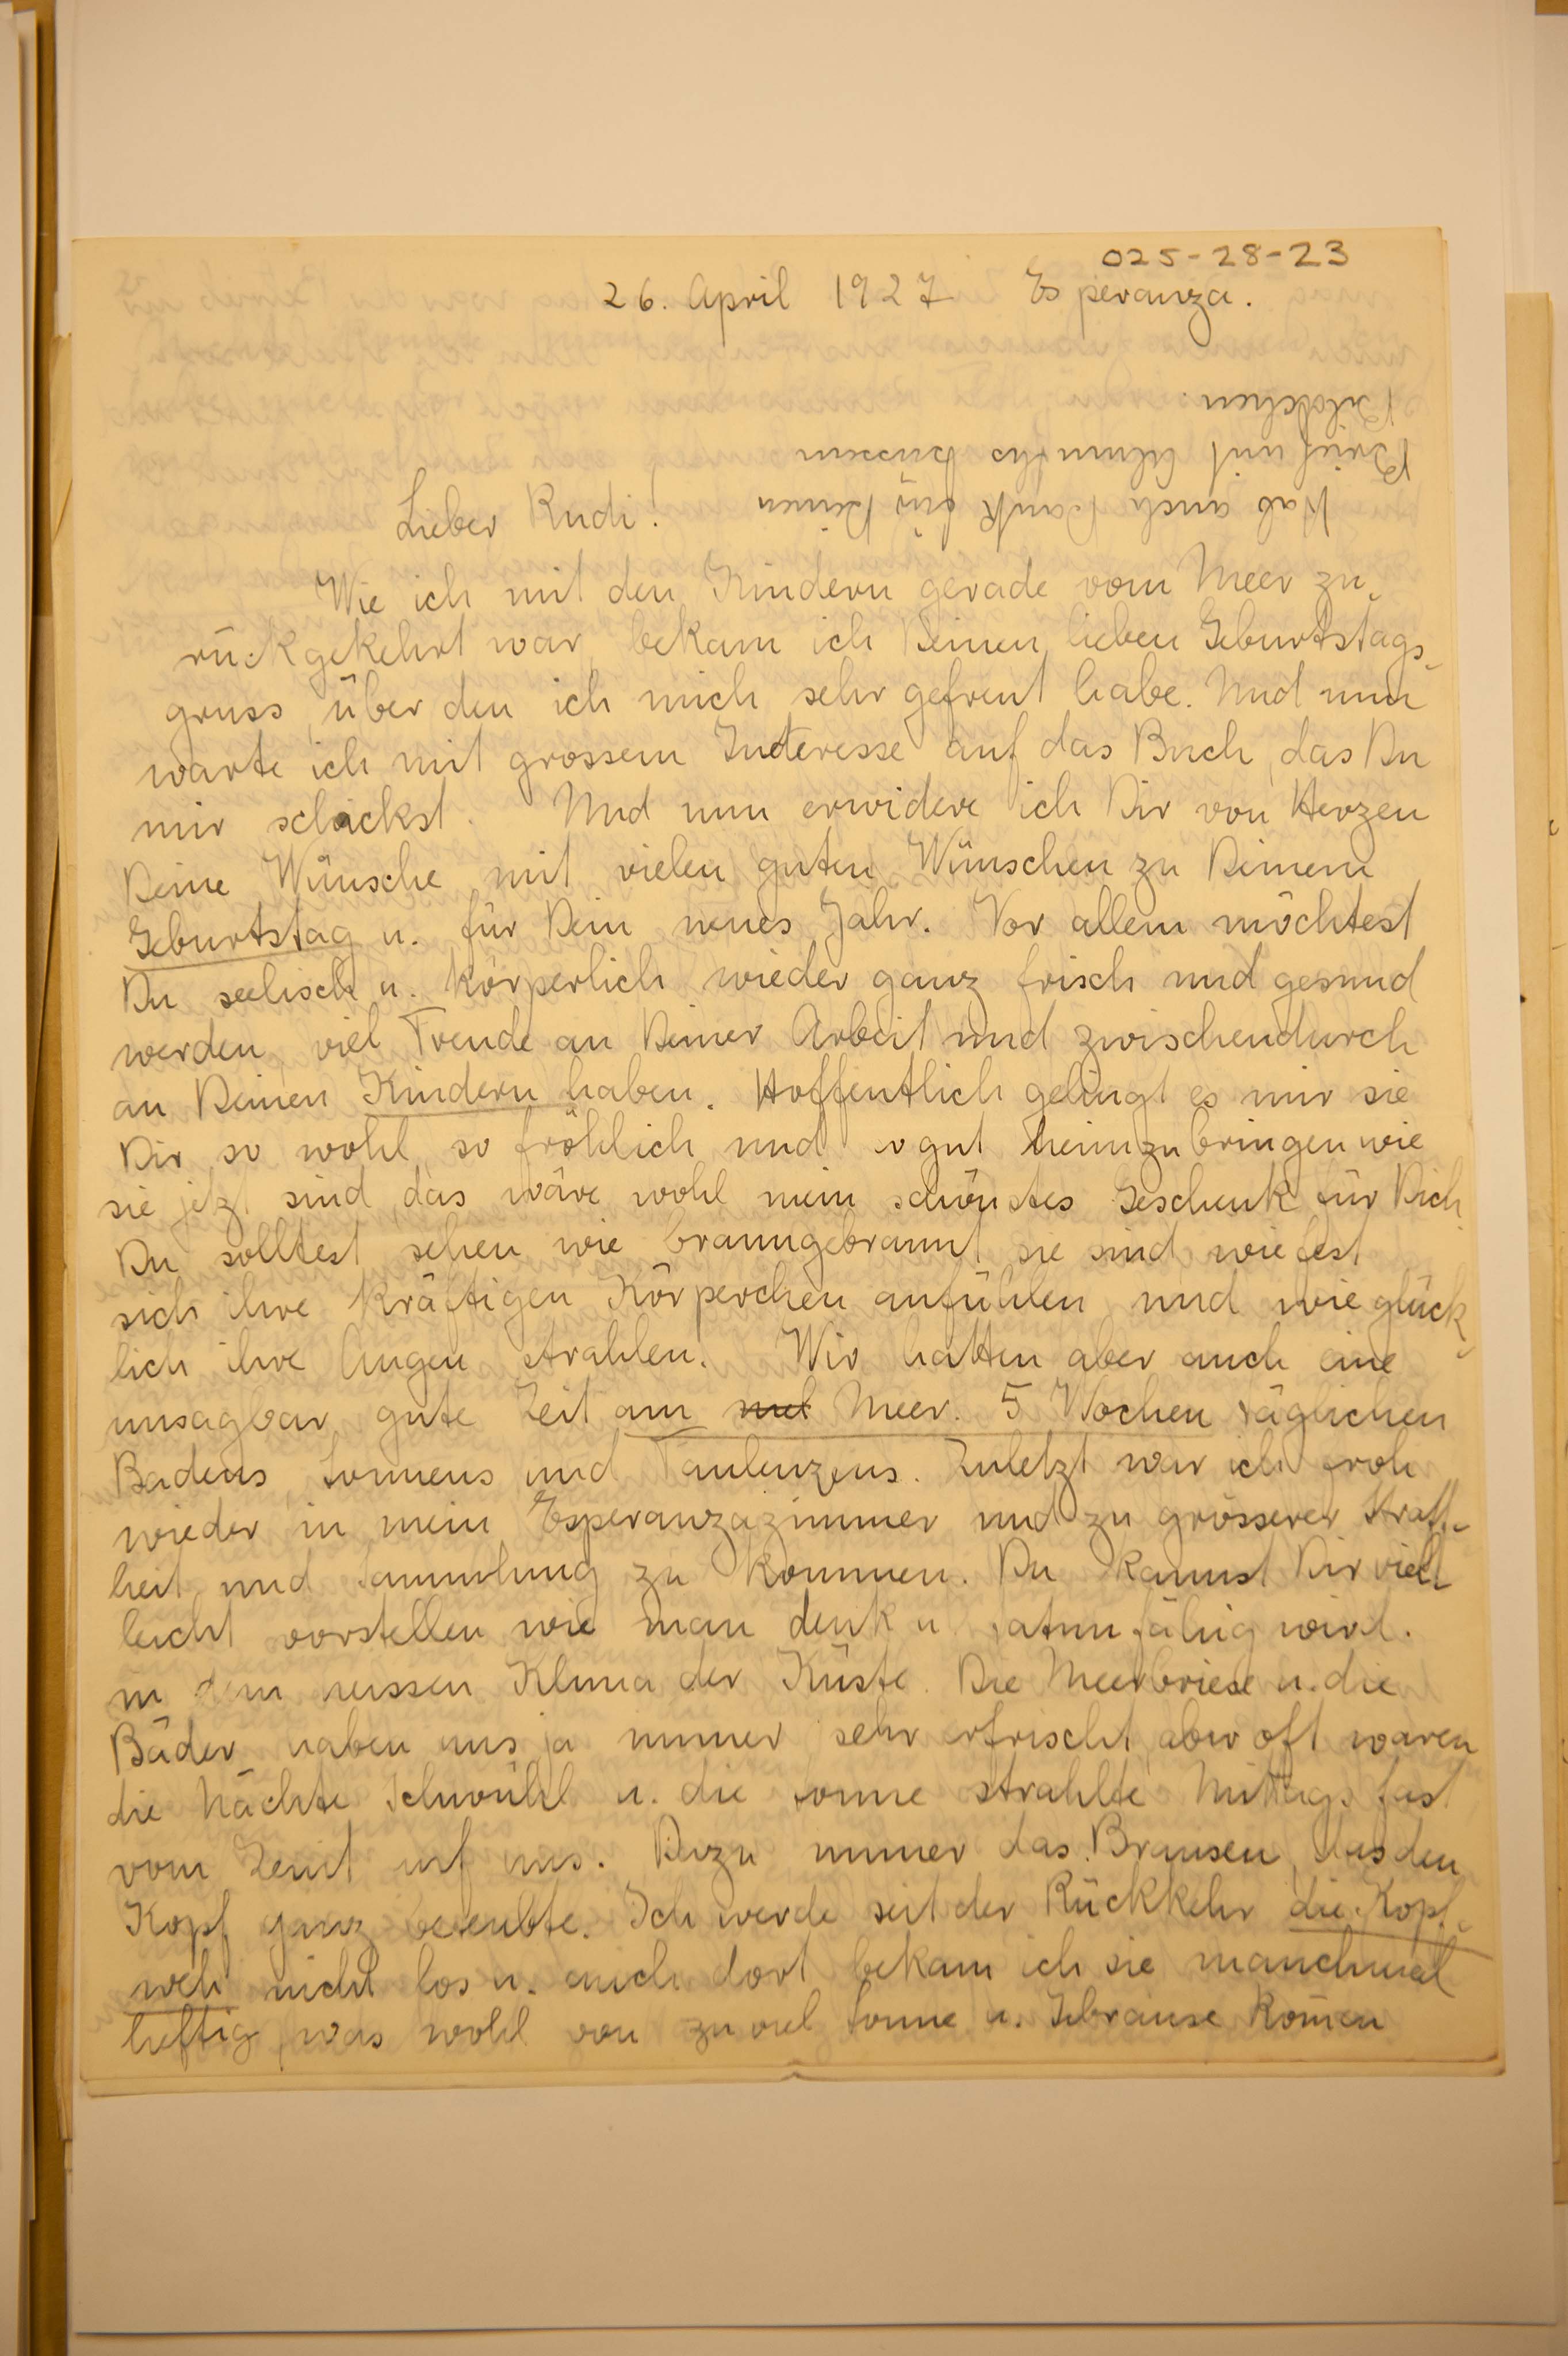 025-28-23
26. April 1927 Esperanza.
Hab auch Dank für Deinen
Brief mit
Lieber Rudi!
Wie ich mit den Kindern gerade vom Meer zu-
rückgekehrt war, bekam ich Deinen lieben Geburtstags-
gruss, über den ich mich sehr gefreut habe. Und nun
warte ich mit grossem Interesse auf das Buch, das Du
mir schickst. Und nun erwidere ich Dir von Herzen
Deine Wünsche mit vielen guten Wünschen zu Deinem
Geburtstag u. für Dein neues Jahr. Vor allem möchtest
Du seelisch u. körperlich wieder ganz frisch und gesund
werden, viel Freude an Deiner Arbeit und zwischendurch
an Deinen Kindern haben. Hoffentlich gelingt es mir sie
Dir so wohl, so fröhlich und so gut heimzubringen wie
sie jetzt sind, das wäre wohl mein schönstes Geschenk für Dich.
Du solltest sehen wie braungebrannt sie sind, wie fest
sich ihre kräftigen Körperchen anfühlen und wie glück-
lich ihre Augen strahlen. Wir hatten aber auch eine
unsagbar gute Zeit am Meer. 5 Wochen täglichen
Badens, Sonnens und Faulenzens. Zuletzt war ich froh
wieder in mein Esperanzazimmer und zu grösserer Straff-
heit und Sammlung zu kommen. Du kannst Dir viel-
leicht vorstellen wie man denk u. tatunfähig wird.
in dem heissen Klima der Küste. Die Meerbriese u. die
Bäder haben uns ja immer sehr erfrischt, aber oft waren
die Nächte schwühl u. die Sonne strahlte Mittags fast
vom Zenit auf uns. Dazu immer das Brausen, das den
Kopf ganz beteubte. Ich werde seit der Rückkehr die Kopf-
weh nicht los u. auch dort bekam ich sie manchmal
heftig, was wohl von zu viel Sonne u. Gebrause kom̄en